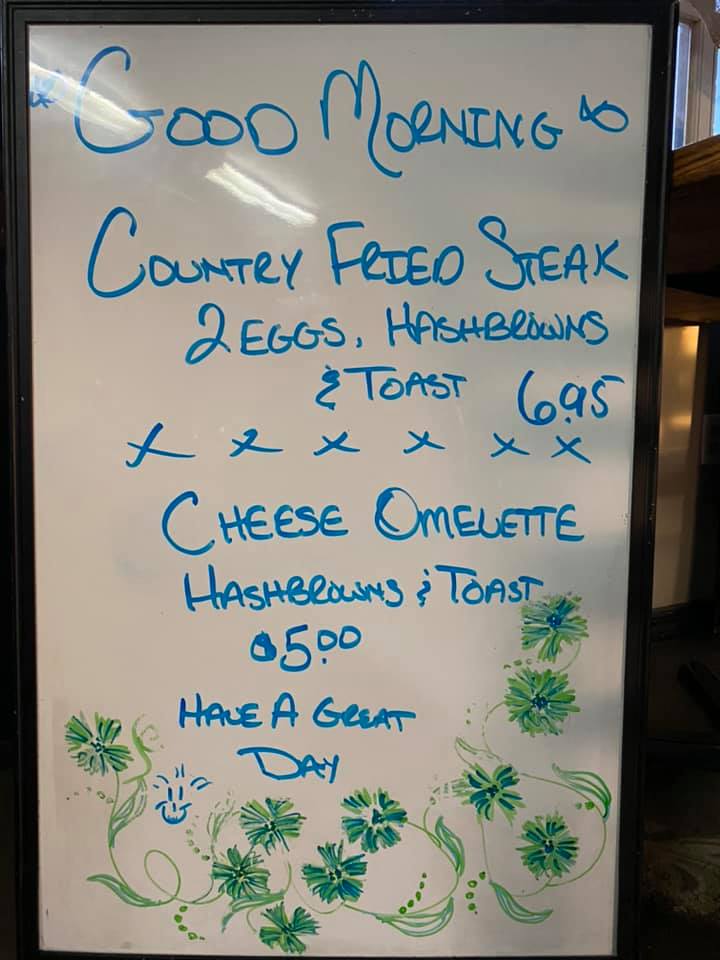 GOOD MORNING
COUNTRY FRIED STEAK
2 EGGS, HASHBROWNS
& TOAST 6.95
x x x x x x
CHEESE OMELETTE
HASHBROWNS & TOAST
$5.00
HAVE A GREAT
DAY